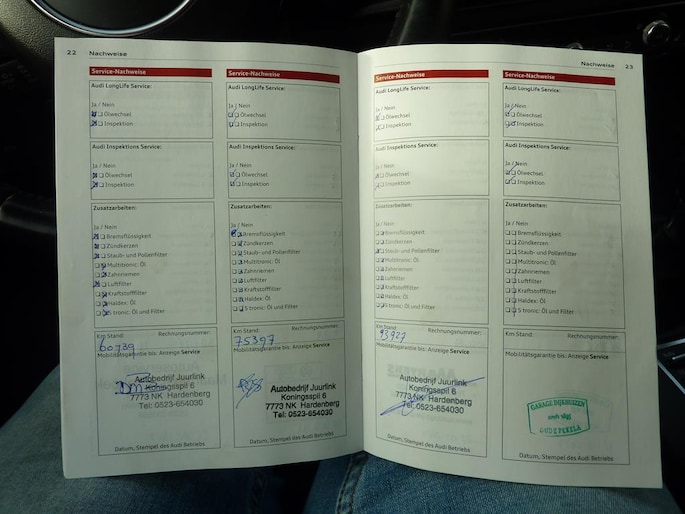 22 Nachweise
Service-Nachweise
Audi LongLife Service:
Ja / Nein
Ölwechsel
Inspektion
Audi Inspektions Service:
Ja / Nein
Ölwechsel
Inspektion
Zusatzarbeiten:
Ja / Nein
Bremsflüssigkeit
Zündkerzen
Staub- und Pollenfilter
Multitronic: Öl
Zahnriemen
Luftfilter
Kraftstofffilter
Haldex: Öl
S tronic: Öl und Filter
Km Stand: Rechnungsnummer:
60739
Mobilitätsgarantie bis: Anzeige Service
Autobedrijf Juurlink
Koningsspil 6
7773 NK Hardenberg
Tel: 0523-654030
Datum, Stempel des Audi Betriebs
Service-Nachweise
Audi LongLife Service:
Ja / Nein
Ölwechsel
Inspektion
Audi Inspektions Service:
Ja / Nein
Ölwechsel
Inspektion
Zusatzarbeiten:
Ja / Nein
Bremsflüssigkeit
Zündkerzen
Staub- und Pollenfilter
Multitronic: Öl
Zahnriemen
Luftfilter
Kraftstofffilter
Haldex: Öl
S tronic: Öl und Filter
Km Stand: Rechnungsnummer:
75397
Mobilitätsgarantie bis: Anzeige Service
Autobedrijf Juurlink
Koningsspil 6
7773 NK Hardenberg
Tel: 0523-654030
Datum, Stempel des Audi Betriebs
Nachweise 23
Service-Nachweise
Audi LongLife Service:
Ja / Nein
Ölwechsel
Inspektion
Audi Inspektions Service:
Ja / Nein
Ölwechsel
Inspektion
Zusatzarbeiten:
Ja / Nein
Bremsflüssigkeit
Zündkerzen
Staub- und Pollenfilter
Multitronic: Öl
Zahnriemen
Luftfilter
Kraftstofffilter
Haldex: Öl
S tronic: Öl und Filter
Km Stand: Rechnungsnummer:
93927
Mobilitätsgarantie bis: Anzeige Service
Autobedrijf Juurlink
Koningsspil 6
7773 NK Hardenberg
Tel: 0523-654030
Datum, Stempel des Audi Betriebs
Service-Nachweise
Audi LongLife Service:
Ja / Nein
Ölwechsel
Inspektion
Audi Inspektions Service:
Ja / Nein
Ölwechsel
Inspektion
Zusatzarbeiten:
Ja / Nein
Bremsflüssigkeit
Zündkerzen
Staub- und Pollenfilter
Multitronic: Öl
Zahnriemen
Luftfilter
Kraftstofffilter
Haldex: Öl
S tronic: Öl und Filter
Km Stand: Rechnungsnummer:
Mobilitätsgarantie bis: Anzeige Service
GARAGE DIJKHUIZEN
OUDE PEKELA
Datum, Stempel des Audi Betriebs